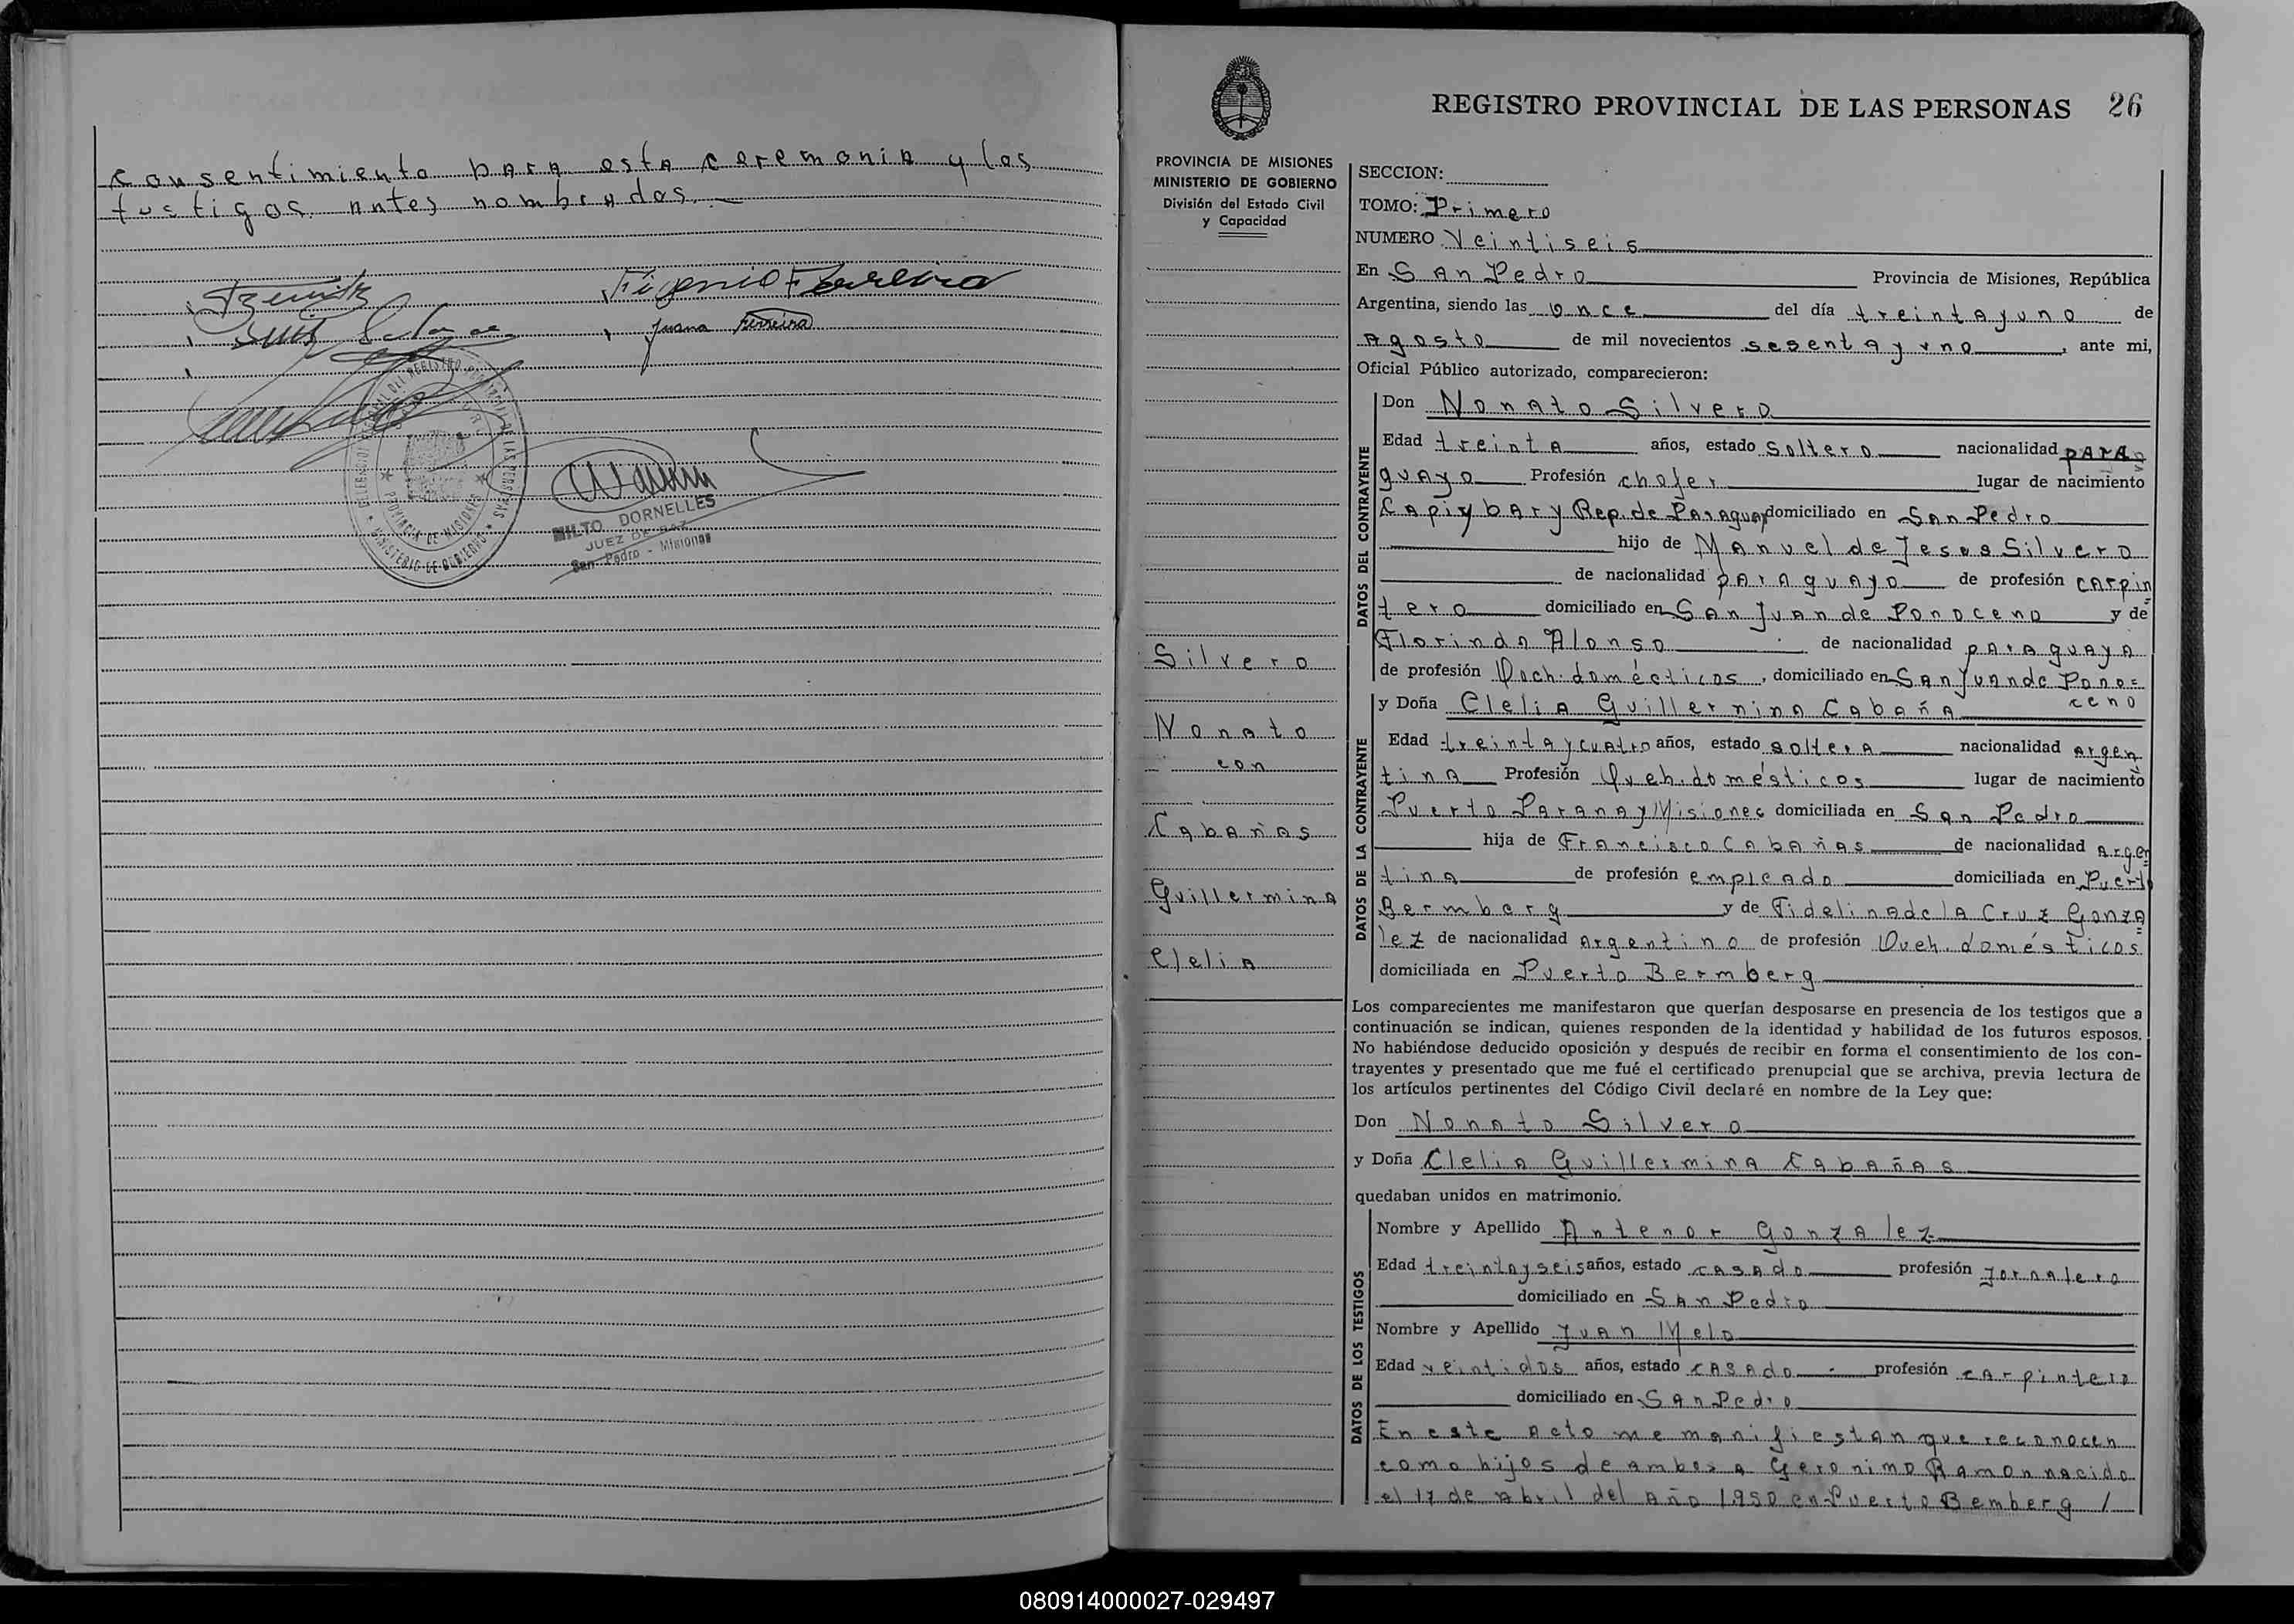 consentimiento para esta ceremonia y los
testigos antes nombrados.
Eugenio Ferreira
Juana Ferreira
MILTO DORNELLES
JUEZ DE PAZ
San Pedro - Misiones
PROVINCIA DE MISIONES
MINISTERIO DE GOBIERNO
REGISTRO PROVINCIAL DE LAS PERSONAS 26
PROVINCIA DE MISIONES
MINISTERIO DE GOBIERNO
División del Estado Civil
y Capacidad
Silvero
Nonato
con
Cabañas
Guillermina
Clelia
SECCION:
TOMO: Primero
NUMERO Veintiseis
En San Pedro Provincia de Misiones, República
Argentina, siendo las once del día treinta y uno de
Agosto de mil novecientos sesenta y uno, ante mi,
Oficial Público autorizado, comparecieron:
DATOS DEL CONTRAYENTE
Don Nonato Silvero
Edad treinta años, estado soltero nacionalidad para
guayo Profesión chofer lugar de nacimiento
Capiybary Rep. de Paraguay domiciliado en San Pedro
hijo de Manuel de Jesus Silvero
de nacionalidad paraguayo de profesión carpin
tero domiciliado en San Juan de Ponoceno y de
Florinda Alonso de nacionalidad paraguaya
de profesión Qeh. domésticos, domiciliado en San Juan de Pono=
ceno
DATOS DE LA CONTRAYENTE
y Doña Clelia Guillermina Cabaña
Edad treinta y cuatro años, estado soltera nacionalidad argen
tina Profesión Queh. domésticos lugar de nacimiento
Puerto Paranay Misiones domiciliada en San Pedro
hija de Francisco Cabañas de nacionalidad Argen
tina de profesión empleado domiciliada en Puerto
Bermberg y de Fidelina de la Cruz Gonza
lez de nacionalidad Argentino de profesión Queh. domésticos
domiciliada en Puerto Bermberg
Los comparecientes me manifestaron que querían desposarse en presencia de los testigos que a
continuación se indican, quienes responden de la identidad y habilidad de los futuros esposos.
No habiéndose deducido oposición y después de recibir en forma el consentimiento de los con-
trayentes y presentado que me fué el certificado prenupcial que se archiva, previa lectura de
los artículos pertinentes del Código Civil declaré en nombre de la Ley que:
Don Nonato Silvero
y Doña Clelia Guillermina Cabañas
quedaban unidos en matrimonio.
DATOS DE LOS TESTIGOS
Nombre y Apellido Antenor Gonzalez
Edad treintayseis años, estado casado profesión jornalero
domiciliado en San Pedro
Nombre y Apellido Juan Melo
Edad veintidos años, estado casado profesión carpintero
domiciliado en San Pedro
En este acto me manifiestan que reconocen
como hijos de ambos a Geronimo Ramon nacido
el 17 de Abril del Año 1950 en Puerto Bemberg /
080914000027-029497